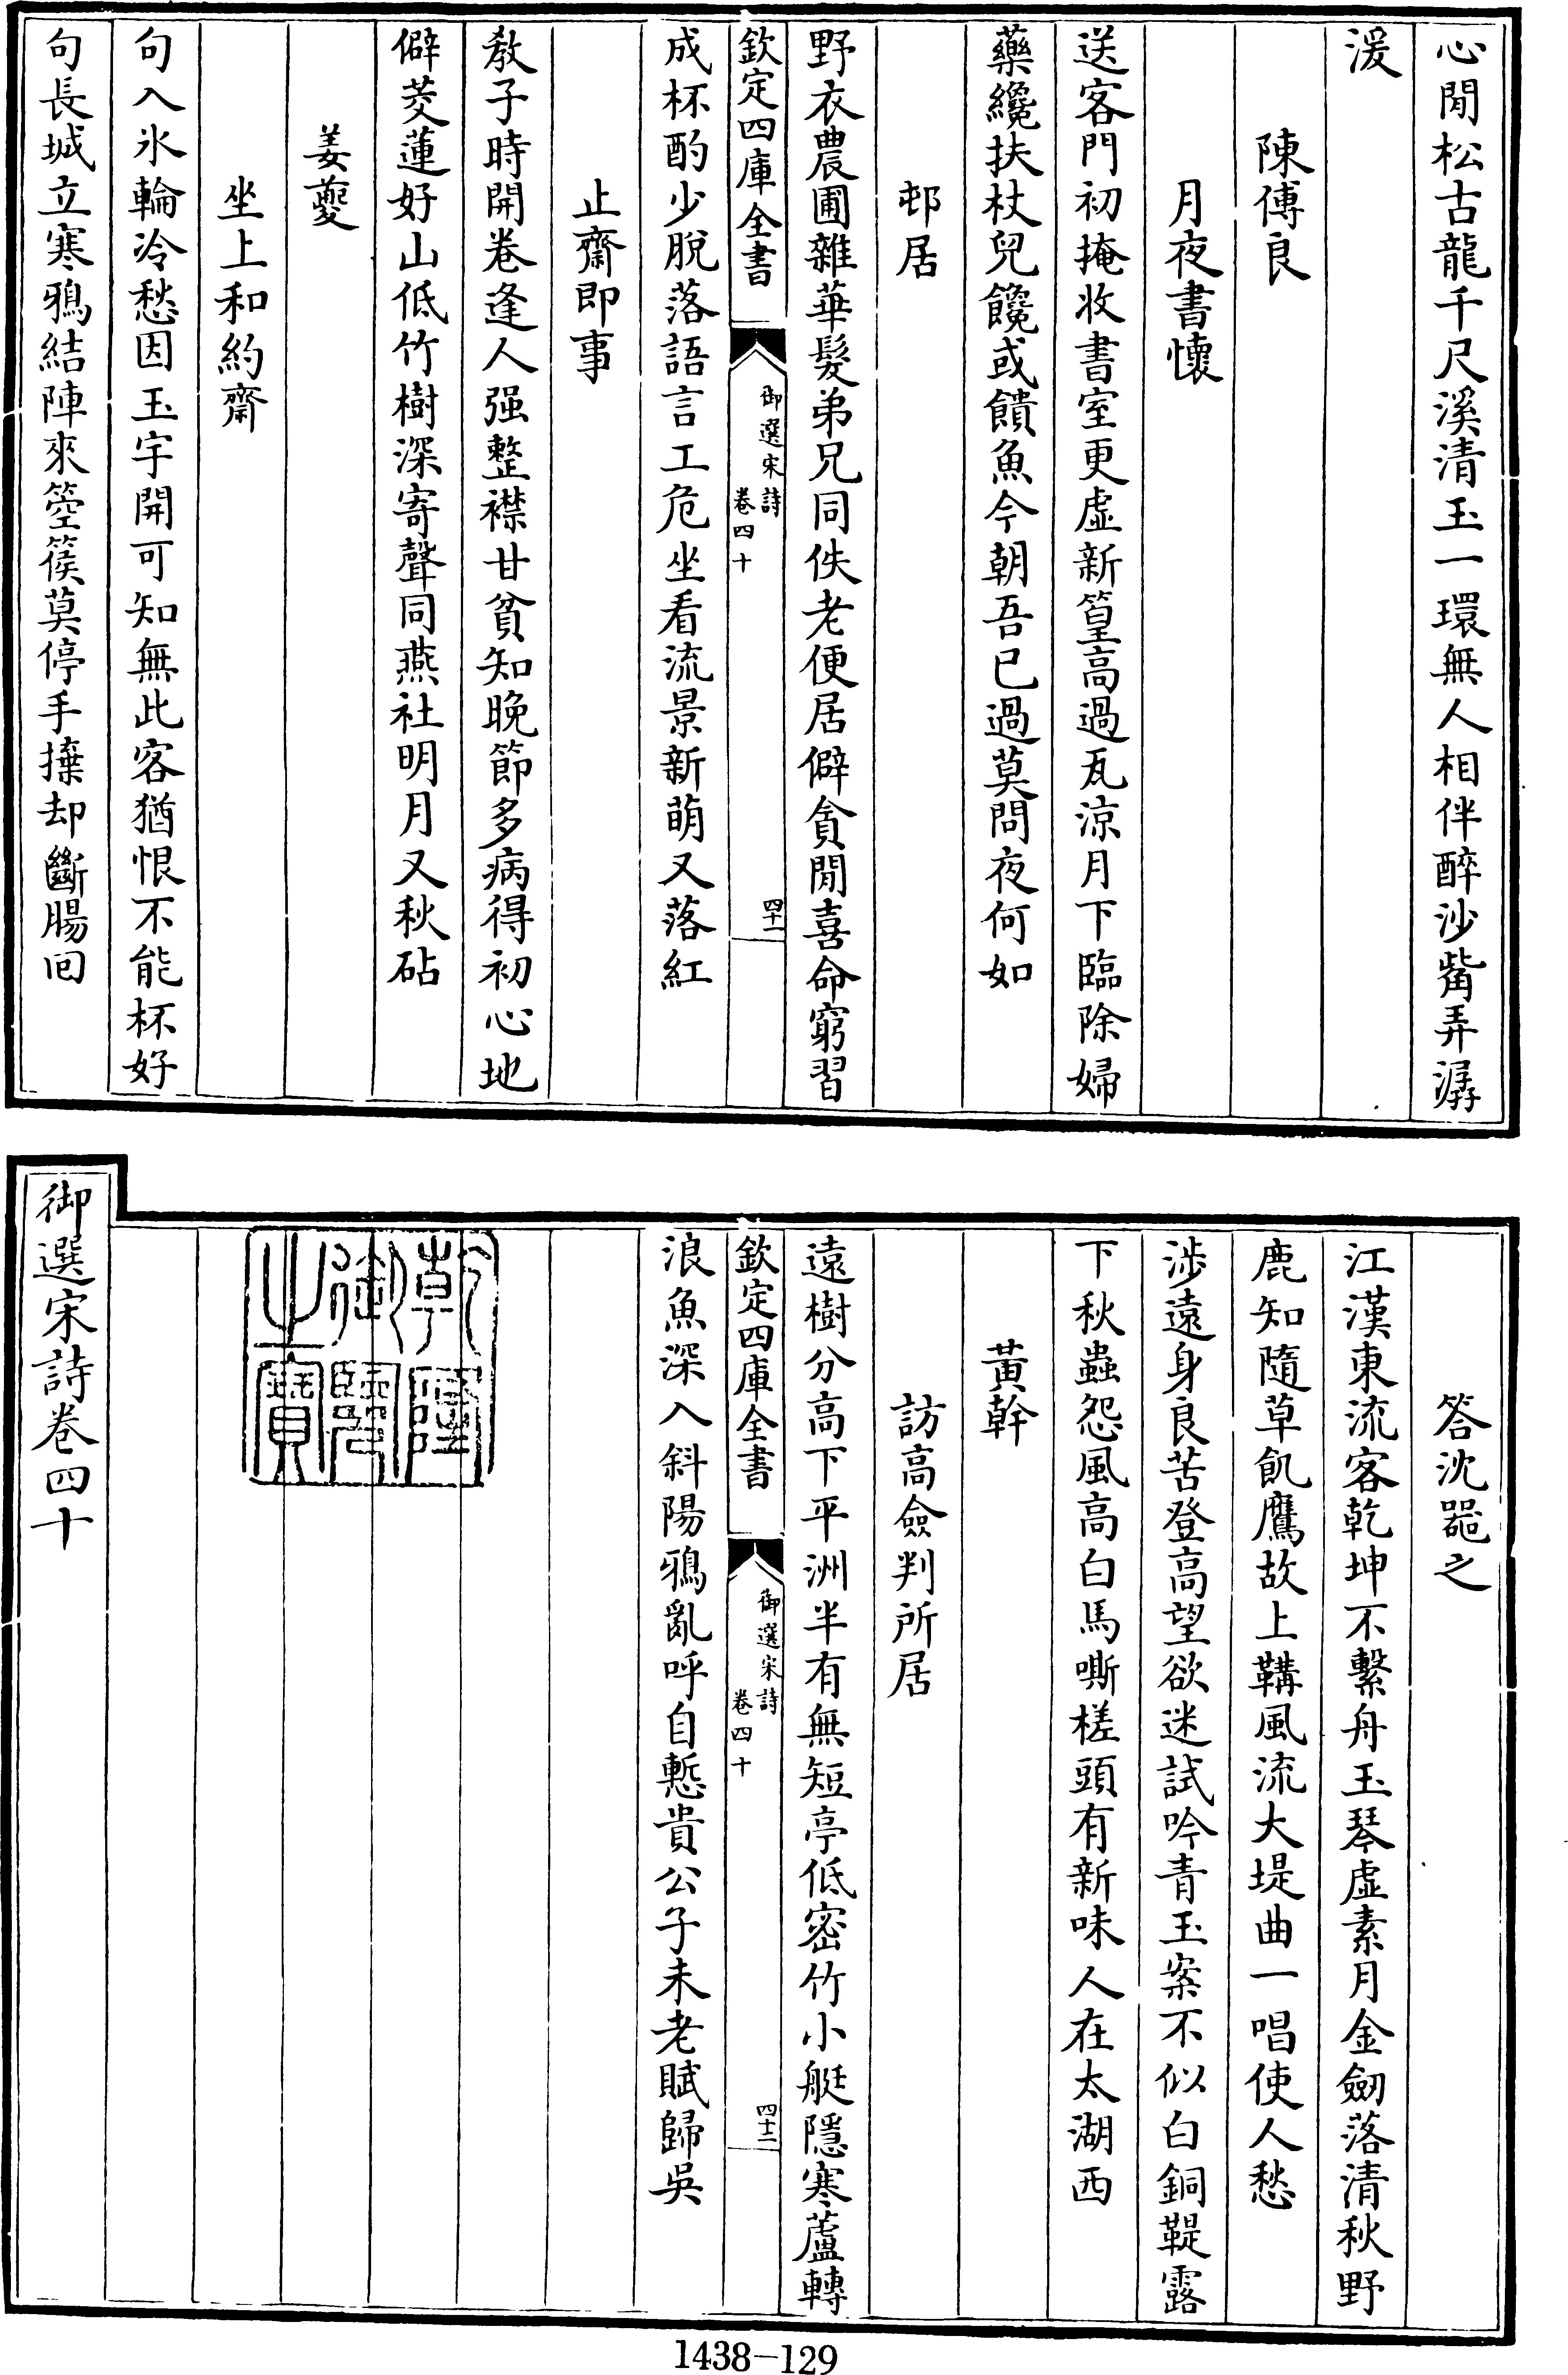 心閒松古龍千尺溪清玉一環無人相伴醉沙觜弄潺
湲
陳傅良
月夜書懷
送客門初掩收書室更虛新篁高過瓦涼月下臨除婦
藥纔扶杖兒饞或饋魚今朝吾已過莫問夜何如
邨居
野衣農圃雜華髮弟兄同佚老便居僻貪閒喜命窮習
欽定四庫全書
御選宋詩
卷四十
四十一
成杯酌少脫落語言工危坐看流景新萌又落紅
止齋即事
教子時開卷逢人强整襟甘貧知晚節多病得初心地
僻菱蓮好山低竹樹深寄聲同燕社明月又秋砧
姜夔
坐上和約齋
句入氷輪冷愁因玉宇開可知無此客猶恨不能杯好
句長城立寒鴉結陣來箜篌莫停手擁却斷腸回
答沈器之
江漢東流客乾坤不繫舟玉琴虛素月金劒落清秋野
鹿知隨草飢鷹故上鞲風流大堤曲一唱使人愁
涉遠身良苦登高望欲迷試吟青玉案不似白銅鞮露
下秋蟲怨風高白馬嘶槎頭有新味人在太湖西
黃幹
訪高僉判所居
遠樹分高下平洲半有無短亭低密竹小艇隱寒蘆轉
欽定四庫全書
御選宋詩
卷四十
四十二
浪魚深入斜陽鴉亂呼自慙貴公子未老賦歸吳
乾隆御覽之寶
御選宋詩卷四十
1438-129